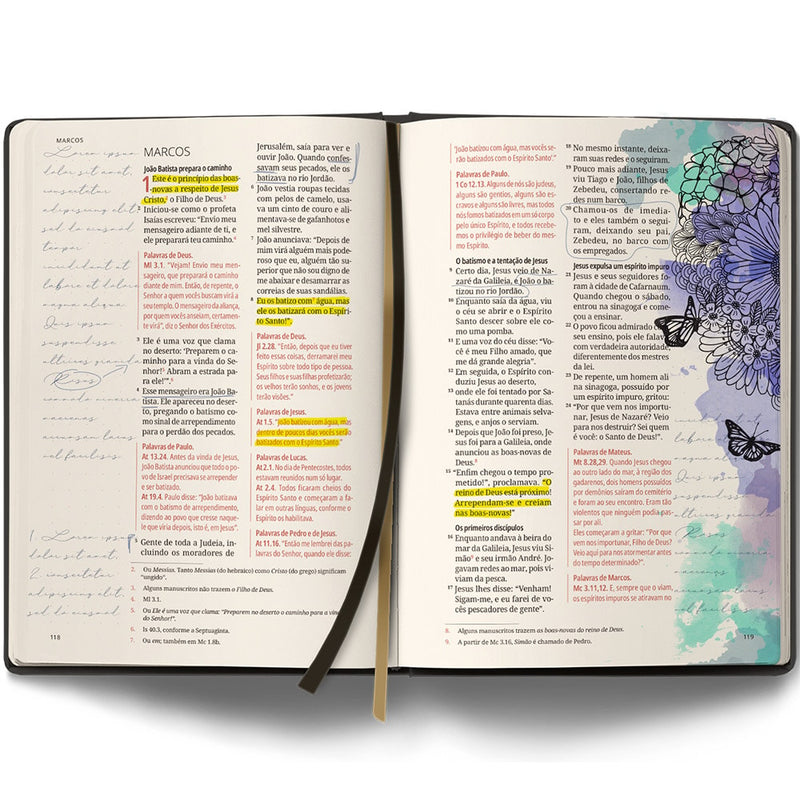 MARCOS
Lorem ipsum
dolor sit amet,
consectetur
adipiscing elit,
sed do eiusmod
tempor
incididunt ut
labore et dolore
magna aliqua
Quis ipsum
suspendisse
ultrices gravida
Risus
commodo viverra
maecenas
accumsan lacus
vel facilisis
1 Lorem ipsum
dolor sit amet.
2. consectetur
adipiscing elit,
sed do eiusmod
118
MARCOS
João Batista prepara o caminho
1 Este é o princípio das boas-
novas a respeito de Jesus
Cristo,² o Filho de Deus.³
2 Iniciou-se como o profeta
Isaías escreveu: “Envio meu
mensageiro adiante de ti, e
ele preparará teu caminho.⁴
Palavras de Deus.
Ml 3.1. “Vejam! Envio meu men-
sageiro, que preparará o caminho
diante de mim. Então, de repente, o
Senhor a quem vocês buscam virá a
seu templo. O mensageiro da aliança,
por quem vocês anseiam, certamen-
te virá”, diz o Senhor dos Exércitos.
3 Ele é uma voz que clama
no deserto: ‘Preparem o ca-
minho para a vinda do Se-
nhor!⁵ Abram a estrada pa-
ra ele!’”.⁶
4 Esse mensageiro era João Ba-
tista. Ele apareceu no deser-
to, pregando o batismo co-
mo sinal de arrependimento
para o perdão dos pecados.
Palavras de Paulo.
At 13.24. Antes da vinda de Jesus,
João Batista anunciou que todo o po-
vo de Israel precisava se arrepender
e ser batizado.
At 19.4. Paulo disse: “João batizava
com o batismo de arrependimento,
dizendo ao povo que cresse naque-
le que viria depois, isto é, em Jesus”.
5 Gente de toda a Judeia, in-
cluindo os moradores de
Jerusalém, saía para ver e
ouvir João. Quando confes-
savam seus pecados, ele os
batizava no rio Jordão.
6 João vestia roupas tecidas
com pelos de camelo, usa-
va um cinto de couro e ali-
mentava-se de gafanhotos e
mel silvestre.
7 João anunciava: “Depois de
mim virá alguém mais pode-
roso que eu, alguém tão su-
perior que não sou digno de
me abaixar e desamarrar as
correias de suas sandálias.
8 Eu os batizo com⁷ água, mas
ele os batizará com o Espíri-
to Santo!”.
Palavras de Deus.
Jl 2.28. “Então, depois que eu tiver
feito essas coisas, derramarei meu
Espírito sobre todo tipo de pessoa.
Seus filhos e suas filhas profetizarão;
os velhos terão sonhos, e os jovens
terão visões.”
Palavras de Jesus.
At 1.5. “João batizou com água, mas
dentro de poucos dias vocês serão
batizados com o Espírito Santo.”
Palavras de Lucas.
At 2.1. No dia de Pentecostes, todos
estavam reunidos num só lugar.
At 2.4. Todos ficaram cheios do
Espírito Santo e começaram a fa-
lar em outras línguas, conforme o
Espírito os habilitava.
Palavras de Pedro e de Jesus.
At 11.16. “Então me lembrei das pa-
lavras do Senhor, quando ele disse:
2. Ou Messias. Tanto Messias (do hebraico) como Cristo (do grego) significam
“ungido”.
3. Alguns manuscritos não trazem o Filho de Deus.
4. Ml 3.1.
5. Ou Ele é uma voz que clama: “Preparem no deserto o caminho para a vinda
do Senhor!”.
6. Is 40.3, conforme a Septuaginta.
7. Ou em; também em Mc 1.8b.
‘João batizou com água, mas vocês se-
rão batizados com o Espírito Santo’.”
Palavras de Paulo.
1 Co 12.13. Alguns de nós são judeus,
alguns são gentios, alguns são es-
cravos e alguns são livres, mas todos
nós fomos batizados em um só corpo
pelo único Espírito, e todos recebe-
mos o privilégio de beber do mes-
mo Espírito.
O batismo e a tentação de Jesus
9 Certo dia, Jesus veio de Na-
zaré da Galileia, e João o ba-
tizou no rio Jordão.
10 Enquanto saía da água, viu
o céu se abrir e o Espírito
Santo descer sobre ele co-
mo uma pomba.
11 E uma voz do céu disse: “Vo-
cê é meu Filho amado, que
me dá grande alegria”.
12 Em seguida, o Espírito con-
duziu Jesus ao deserto,
13 onde ele foi tentado por Sa-
tanás durante quarenta dias.
Estava entre animais selva-
gens, e anjos o serviam.
14 Depois que João foi preso, Je-
sus foi para a Galileia, onde
anunciou as boas-novas de
Deus.⁸
15 “Enfim chegou o tempo pro-
metido!”, proclamava. “O
reino de Deus está próximo!
Arrependam-se e creiam
nas boas-novas!”
Os primeiros discípulos
16 Enquanto andava à beira do
mar da Galileia, Jesus viu Si-
mão⁹ e seu irmão André. Jo-
gavam redes ao mar, pois vi-
viam da pesca.
17 Jesus lhes disse: “Venham!
Sigam-me, e eu farei de vo-
cês pescadores de gente”.
18 No mesmo instante, deixa-
ram suas redes e o seguiram.
19 Pouco mais adiante, Jesus
viu Tiago e João, filhos de
Zebedeu, consertando re-
des num barco.
20 Chamou-os de imedia-
to e eles também o segui-
ram, deixando seu pai,
Zebedeu, no barco com
os empregados.
Jesus expulsa um espírito impuro
21 Jesus e seus seguidores fo-
ram à cidade de Cafarnaum.
Quando chegou o sábado,
entrou na sinagoga e come-
çou a ensinar.
22 O povo ficou admirado
seu ensino, pois ele falava
com verdadeira autoridade,
diferentemente dos mestres
da lei.
23 De repente, um homem ali
na sinagoga, possuído por
um espírito impuro, gritou:
24 “Por que vem nos importu-
nar, Jesus de Nazaré? Veio
para nos destruir? Sei quem
é você: o Santo de Deus!”.
Palavras de Mateus.
Mt 8.28,29. Quando Jesus chegou
ao outro lado do mar, à região dos
gadarenos, dois homens possuídos
por demônios saíram do cemitério
e foram ao seu encontro. Eram tão
violentos que ninguém podia pas-
sar por ali.
Eles começaram a gritar: “Por que
vem nos importunar, Filho de Deus?
Veio aqui para nos atormentar antes
do tempo determinado?”.
Palavras de Marcos.
Mc 3.11,12. E, sempre que o viam,
os espíritos impuros se atiravam no
8. Alguns manuscritos trazem as boas-novas do reino de Deus.
9. A partir de Mc 3.16, Simão é chamado de Pedro.
119